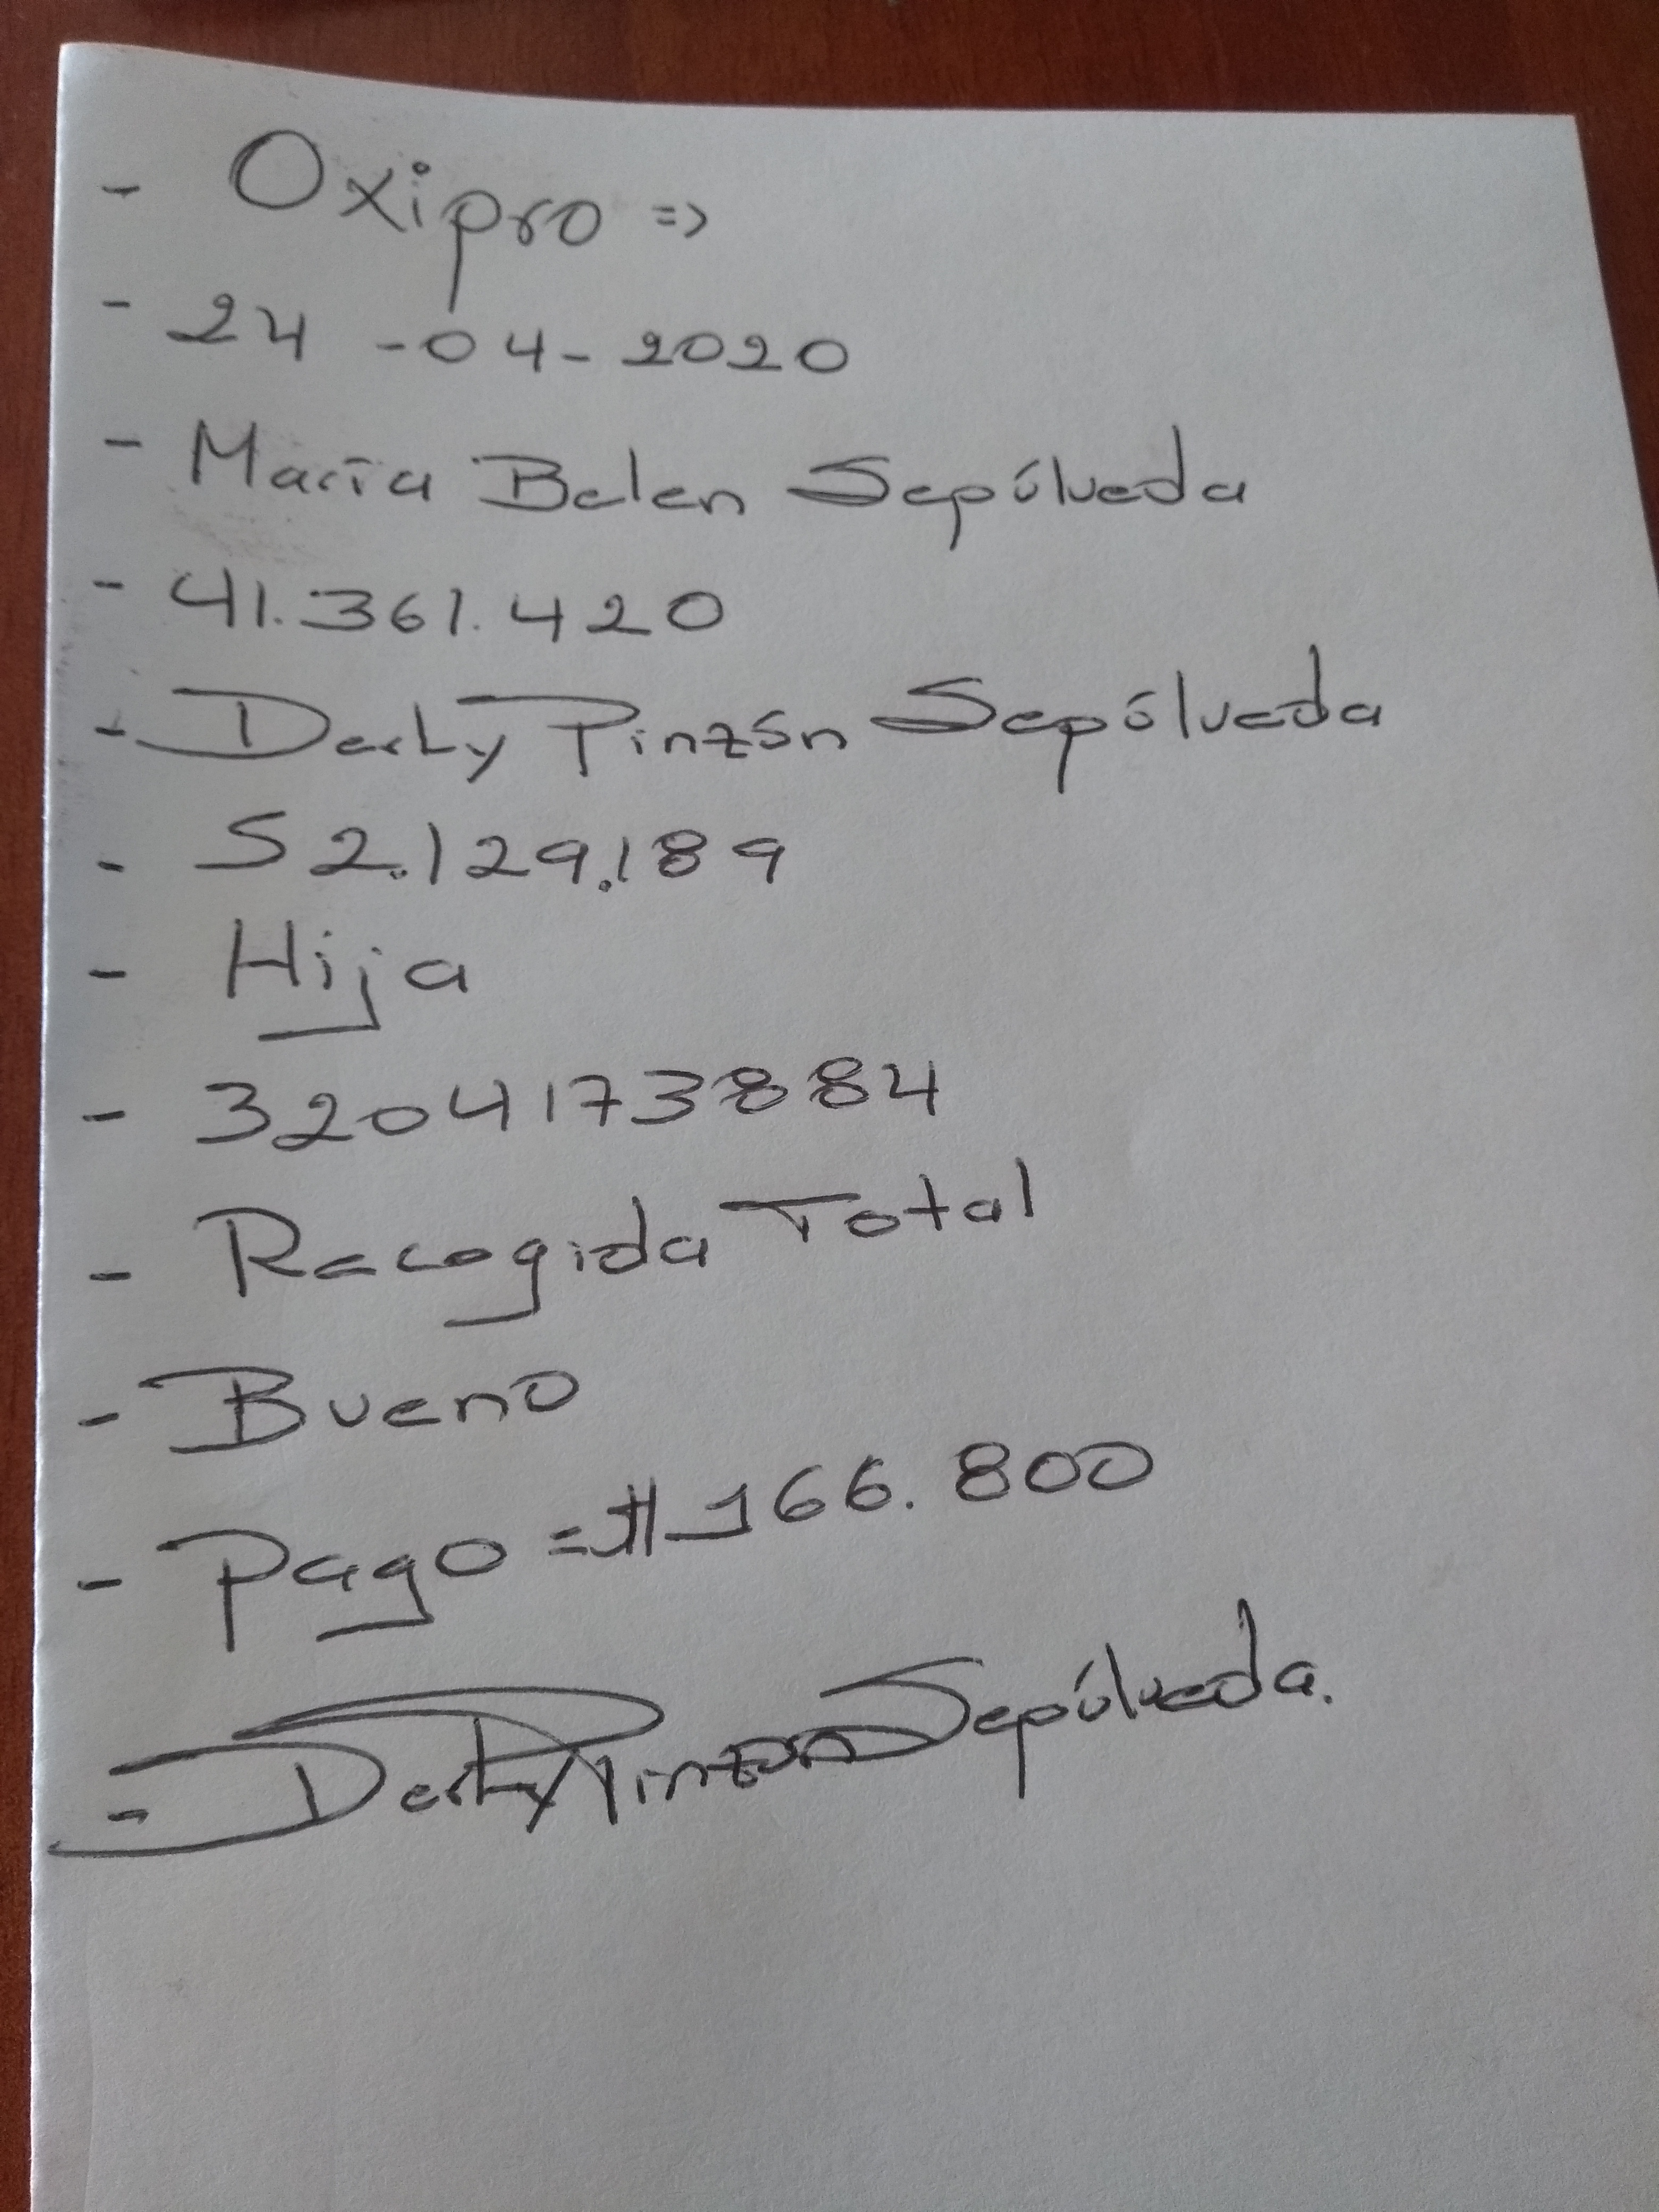 - Oxipro =>
- 24 -04-2020
- María Belen Sepúlveda
- 41.361.420
- Derly Pinzón Sepúlveda
- 52.129.189
- Hija
- 3204173884
- Recogida Total
- Bueno
- Pago = $ 166.800
- Derly Pinzón Sepúlveda.